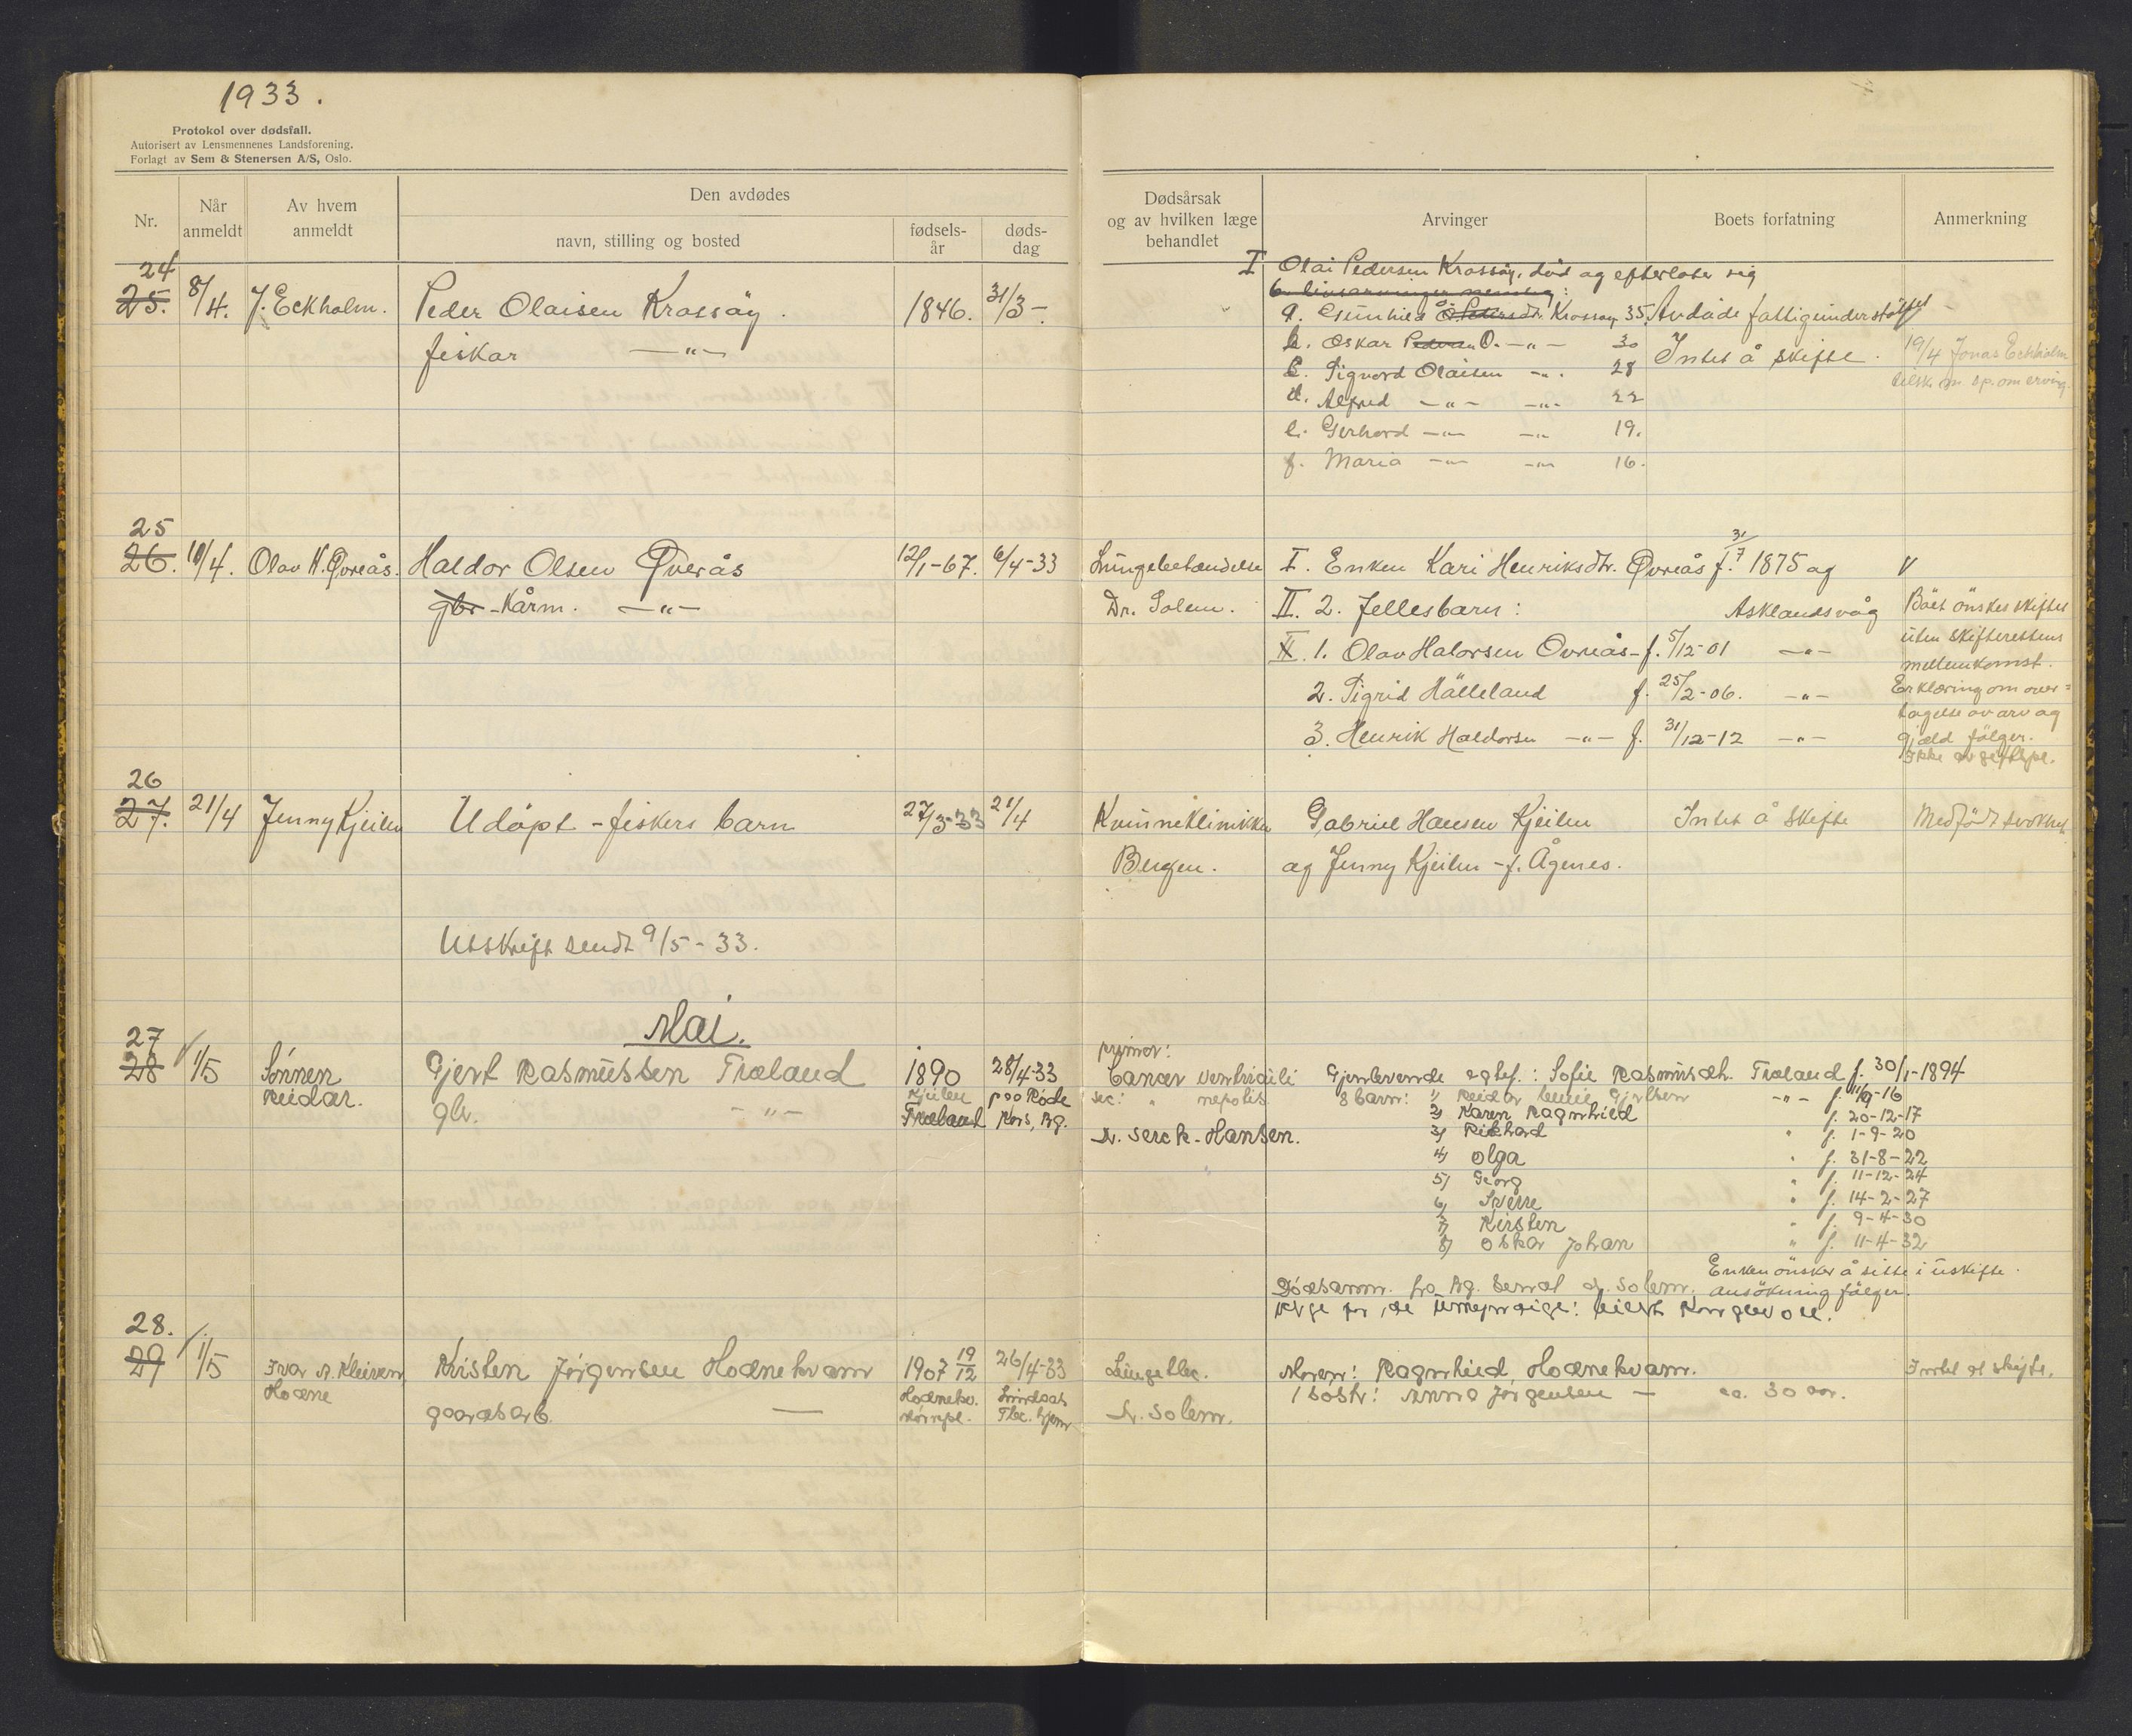 1933.
Protokol over dødsfall.
Autorisert av Lensmennenes Landsforening.
Forlagt av Sem & Stenersen A/S, Oslo.
Nr.
Når anmeldt
Av hvem anmeldt
Den avdødes
navn, stilling og bosted
fødsels-år
døds-dag
Dødsårsak og av hvilken læge behandlet
Arvinger
Boets forfatning
Anmerkning
24
25. 8/4. J. Eckholm. Peder Olaisen Krossøy. 1846. 31/3-.
fiskar —"—
I Olai Pedersen Krossøy, död og efterlote sig
6 livsarvinger nemlig:
a. Gunhild O. Pedersdtr. Krossøy 35. Avdøde fattigunderstøttet
b. Oskar Pedersen O. —"— 30 Intet å skifte. 19/4 Jonas Eckholm
c. Sigvard Olaisen —"— 28
tilsk. om sp. om arving.
d. Alfred —"— —"— 22
e. Gerhard —"— —"— 19.
f. Maria —"— —"— 16.
25
26. 10/4. Olav H. Øvreås. Haldor Olsen Øverås 12/1-67. 6/4-33 Lungebetændelse I. Enken Kari Henriksdtr. Øvreås f. 31/7 1875 og V
gbr - Kårm. —"— Dr. Solem. II. 2. fellesbarn: Asklandsvåg
Böet önskes skiftet
uten skifterettens
mellemkomst.
Erklæring om over=
tagelse av arv og
gjæld fölger.
Ikke avgiftspl.
II. 1. Olav Halorsen Ovreås - f. 5/12-01 —"—
2. Sigrid Hålleland f. 25/2-06. —"—
3. Henrik Haldorsn —"— f. 31/12-12 —"—
26
27. 21/4 Jenny Kjeilen Udöpt - fiskers barn 27/3-33 21/4 Kvinneklinikken Gabriel Hansen Kjeilen Intet å skifte Medfödt svakhet
Bergen. og Jenny Kjeilen - f. Ågenes.
Utskrift sendt 9/5-33.
Mai.
27
28 1/5 Sønnen Gjert Rasmussen Træland 1890 28/4-33
Reidar. gbr. —"— Kjeilen Træland paa Røde Kors, Bg.
primær: Cancer ventriculi
sec: "
Dr. Serck-Hansen.
Gjenlevende egtef.: Sofie Rasmusdtr. Træland f. 30/1-1894
8 barn: 1) Reidar —"— f. 11/9-16
2) Karen Ragnhild f. 20-12-17
3) Rikhard " f. 1-9-20
4) Olga " f. 31-8-22
5) Georg " f. 11-12-24
6) Sverre " f. 14-2-27
7) Kirsten " f. 9-4-30
8) Oskar Johan " f. 11-4-32
Enken önsker å sitte i uskifte.
ansökning fölger.
Dødsanm. fra Bg. sendt dr. Solem.
28.
29 1/5 Ivar A. Kleiven Kristen Jørgensen Hodnekvam 1907 19/12 26/4-33 Lungetbc. Moren: Ragnhild Hodnekvam. Intet at skifte.
Hodne gaardsarb. — Dr. Solem. 1 søstr: Anna Jørgensen — ca. 30 aar.